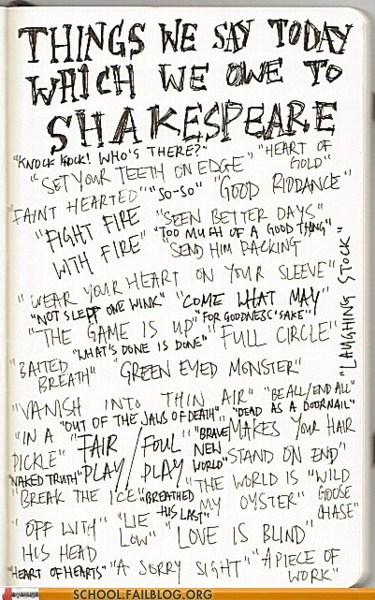 THINGS WE SAY TODAY
WHICH WE OWE TO
SHAKESPEARE
"KNOCK KNOCK! WHO'S THERE?" "HEART OF GOLD"
"SET YOUR TEETH ON EDGE"
"FAINT HEARTED" "SO-SO" "GOOD RIDDANCE"
"FIGHT FIRE WITH FIRE" "SEEN BETTER DAYS"
"TOO MUCH OF A GOOD THING"
"SEND HIM PACKING"
"WEAR YOUR HEART ON YOUR SLEEVE"
"LAUGHING STOCK"
"NOT SLEPT ONE WINK" "COME WHAT MAY"
"THE GAME IS UP" "FOR GOODNESS' SAKE" "FULL CIRCLE"
"WHAT'S DONE IS DONE"
"BAITED BREATH" "GREEN EYED MONSTER"
"VANISH INTO THIN AIR" "BE ALL/END ALL"
"OUT OF THE JAWS OF DEATH" "DEAD AS A DOORNAIL"
"IN A PICKLE" "FAIR PLAY/FOUL PLAY" "BRAVE NEW WORLD" MAKES YOUR HAIR STAND ON END"
"NAKED TRUTH"
"BREAK THE ICE" "BREATHED HIS LAST" "THE WORLD IS MY OYSTER" "WILD GOOSE CHASE"
"OFF WITH HIS HEAD" "LIE LOW" "LOVE IS BLIND"
"HEART OF HEARTS" "A SORRY SIGHT" "A PIECE OF WORK"
SCHOOL.FAILBLOG.ORG